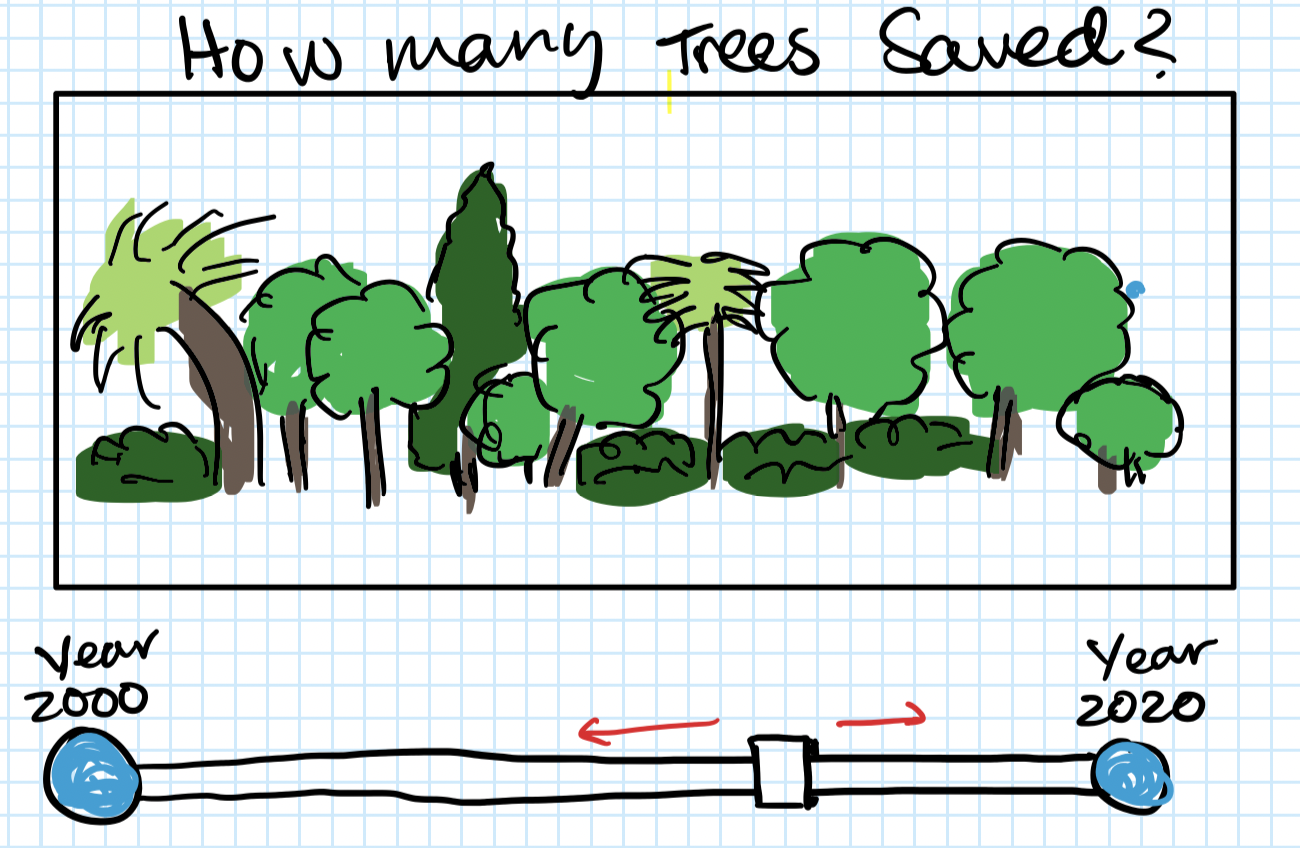 How many Trees Saved?
Year
2000
Year
2020